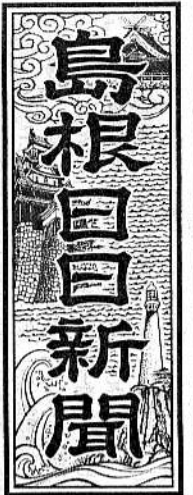 島根日日新聞